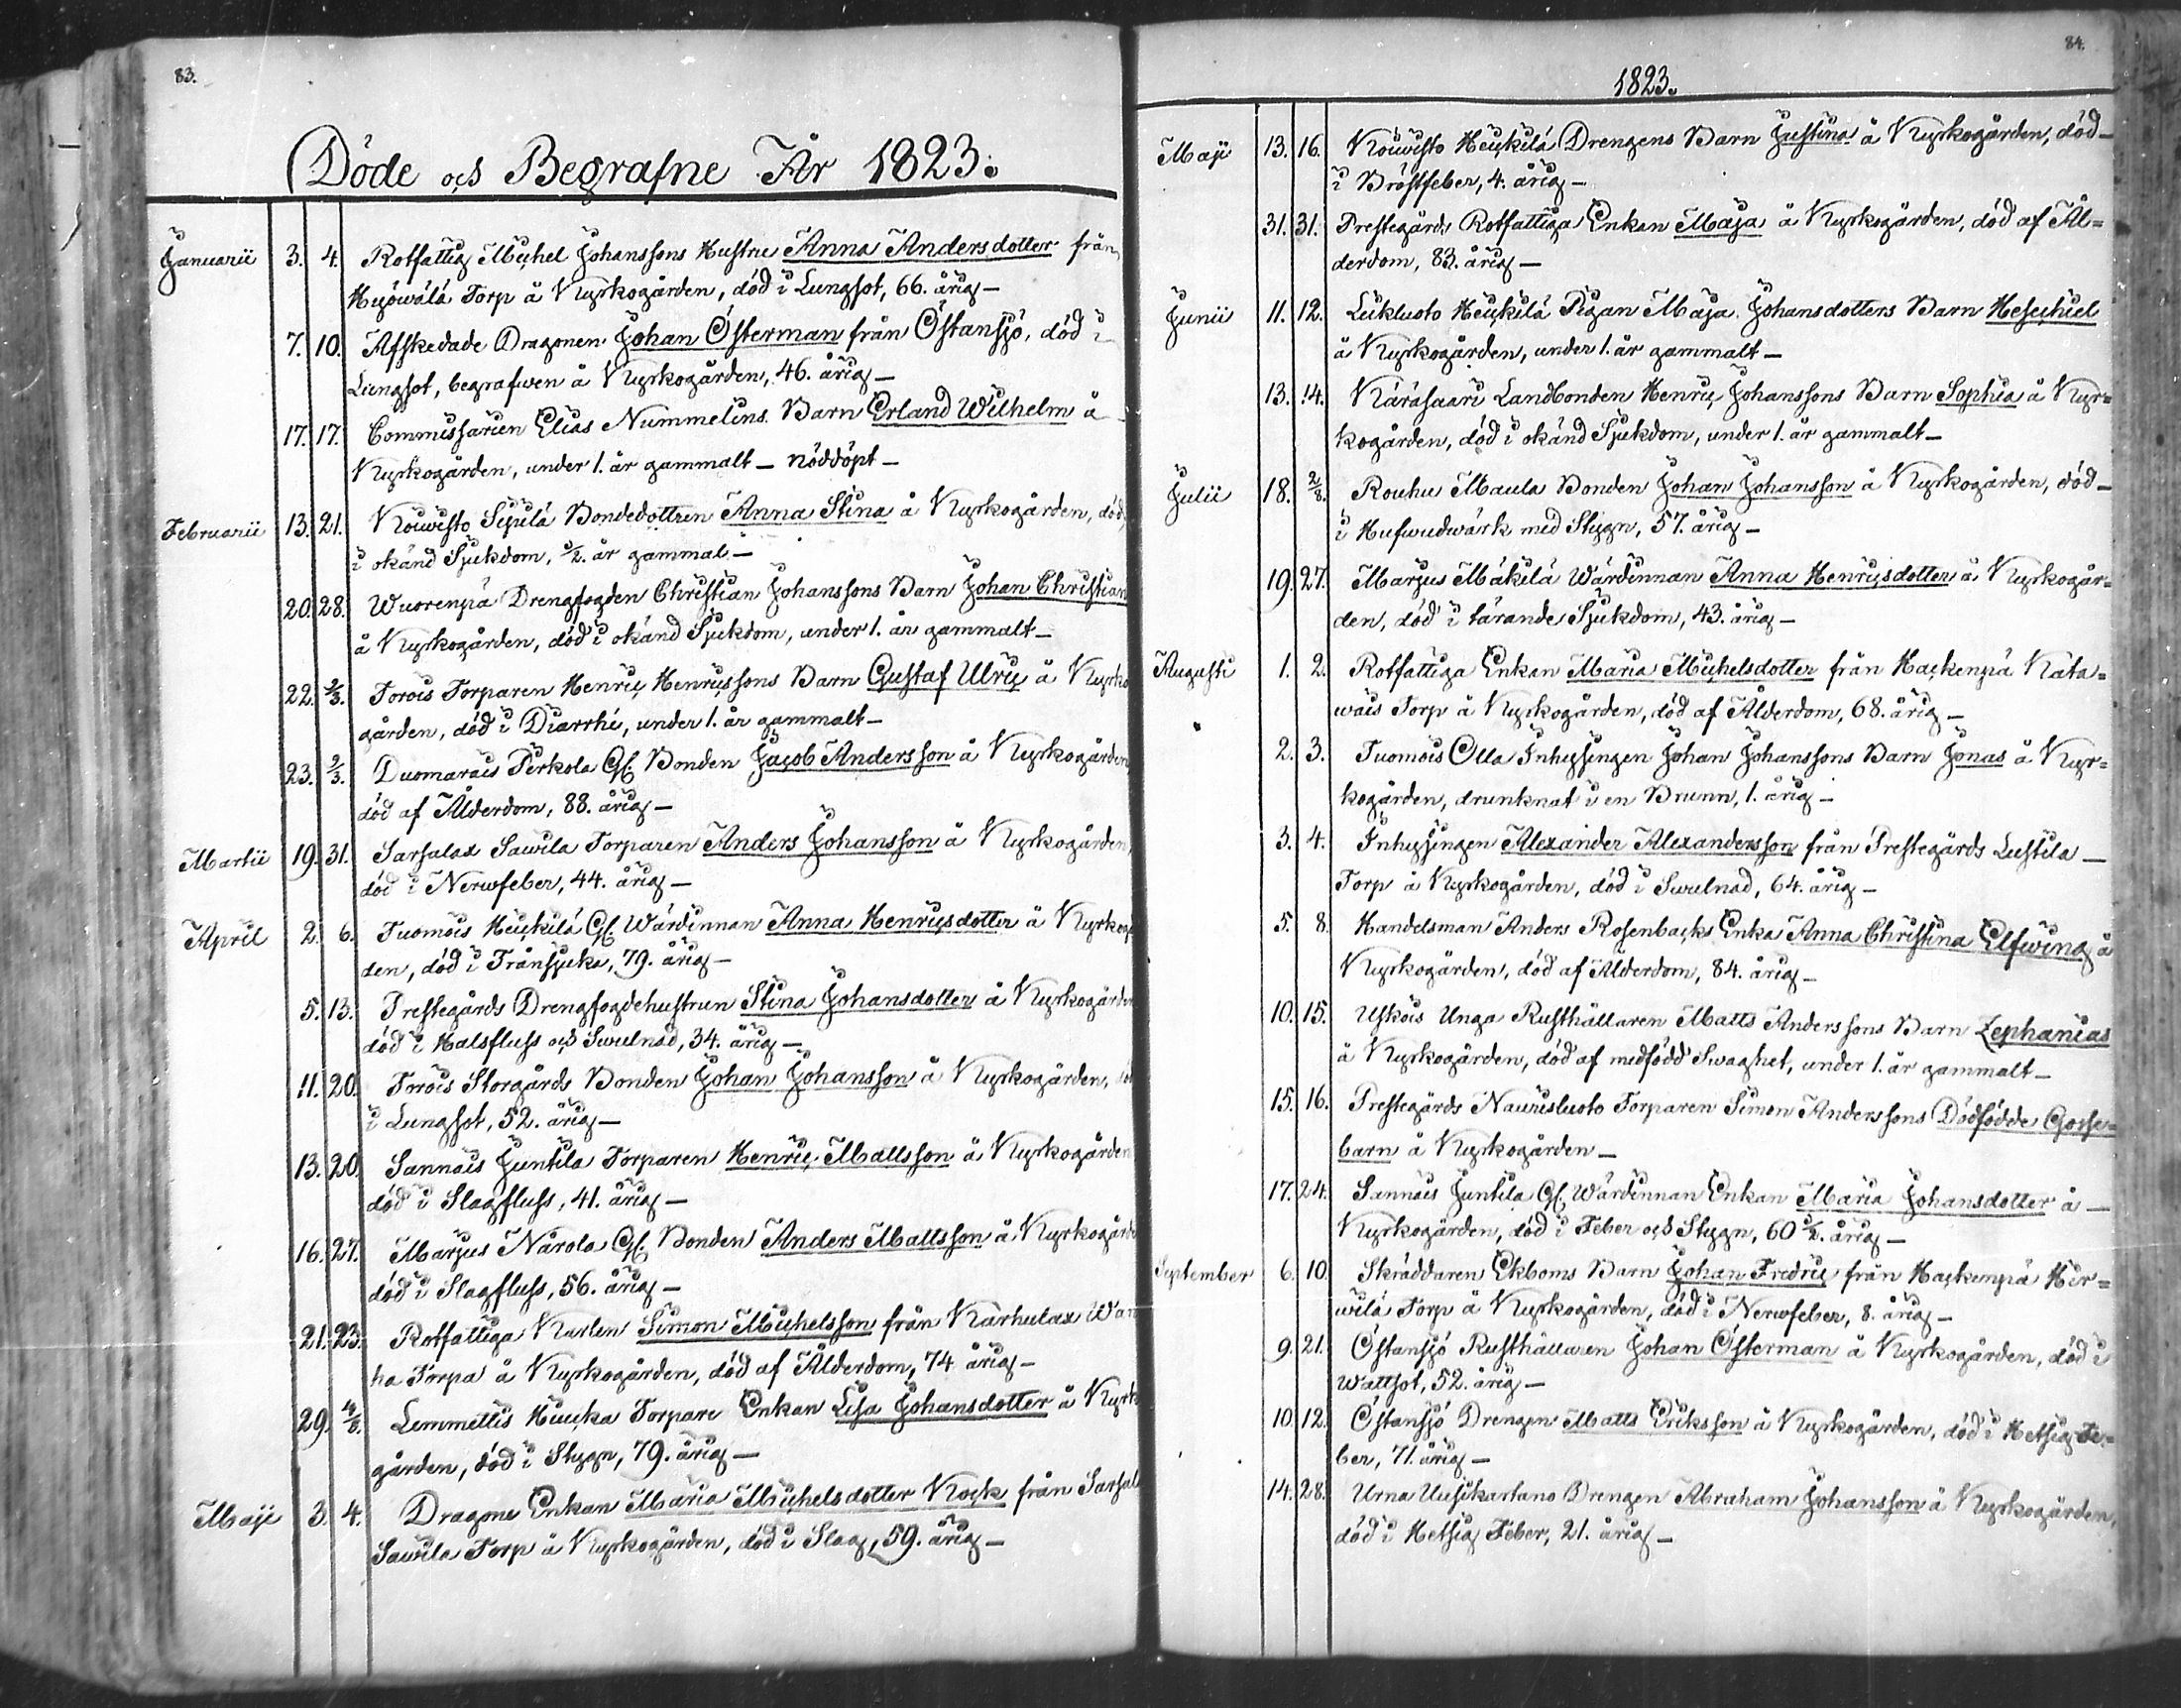 83.
Döde och Begrafne År 1823.
Januarii 3. 4. Rotfattig Michel Johanssons Hustru Anna Andersdotter från
Hyöwälä Torp å Kyrkogården, död i Lungsot, 66. årig—
7. 10. Afskedade Dragonen Johan Österman från Östansjö, död i
Lungsot, begrafwen å Kyrkogården, 46. årig—
17. 17. Commissarien Elias Nummelins Barn Erland Wilhelm å
Kyrkogården, under 1. år gammalt— nöddöpt—
Februarii 13. 21. Köuwisto Sipilä Bondedottren Anna Stina å Kyrkogården, död
i okänd Sjukdom, ½. år gammal—
20. 28. Wuorenpä Drengfogden Christian Johanssons Barn Johan Christian
å Kyrkogården, död i okänd Sjukdom, under 1. år gammalt—
22. 2/3. Torois Torparen Henric Henricssons Barn Gustaf Ulric å Kyrko
gården, död i Diarrhé, under 1. år gammalt—
23. 2/3. Duomarais Perkola Gl. Bonden Jacob Andersson å Kyrkogården
död af Ålderdom, 88. årig—
Martii 19. 31. Sarsalax Sawila Torparen Anders Johansson å Kyrkogården,
död i Nerwfeber, 44. årig—
April 2. 6. Tuomois Heickilä Gl. Wärdinnan Anna Henricsdotter å Kyrkog
den, död i Trånsjuka, 79. årig—
5. 13. Prestegårds Drengfogdehustrun Stina Johansdotter å Kyrkogården
död i Halsfluss och Swulnad, 34. årig—
11. 20. Storgårds Bonden Johan Johansson å Kyrkogården, död
i Lungsot, 52. årig—
13. 20. Sannais Juntila Torparen Henric Mattsson å Kyrkogården
död i Slagfluss, 41. årig—
16. 27. Marjus Närola Gl. Bonden Anders Mattsson å Kyrkogården
död i Slagfluss, 56. årig—
21. 23. Rotfattiga Karlen Simon Michelsson från Karhulax Wan
ha Torpa å Kyrkogården, död af Ålderdom, 74 årig—
29. 4/8. Lemmettis Torpare Enkan Lisa Johansdotter å Kyrk
gården, död i Stygn, 79. årig—
Maji 3. 4. Dragone Enkan Maria Michelsdotter Kock från Sarsal
Sawila Torp å Kyrkogården, död i Slag, 59. årig—
84.
1823.
Maji 13. 16. Köuwisto Heickilä Drengens Barn Justina å Kyrkogården, död—
i Bröstfeber, 4. årig—
31. 31. Prestegårds Rotfattiga Enkan Maja å Kyrkogården, död af Ål=
derdom, 83. årig—
Junii 11. 12. Lukluoto Heickilä Pigan Maja Johansdotters Barn Hesechiel
å Kyrkogården, under 1. år gammalt—
13. 14. Käräsaari Landbonden Henric Johanssons Barn Sophia å Kyr=
kogården, död i okänd Sjukdom, under 1. år gammalt—
Julii 18. 2/8. Rouhu Maula Bonden Johan Johansson å Kyrkogården, död—
i Hufwudwärk med Stygn, 57. årig—
19. 27. Marjus Mäkilä Wärdinnan Anna Henricsdotter å Kyrkogår=
den, död i tärande Sjukdom, 43. årig—
Augusti 1. 2. Rotfattiga Enkan Maria Michelsdotter från Hackenpä Kata=
wais Torp å Kyrkogården, död af Ålderdom, 68. årig—
2. 3. Tuomois Olla Inhysingen Johan Johanssons Barn Jonas å Kyr=
kogården, drunknat i en Brunn, 1. årig—
3. 4. Inhysingen Alexander Alexandersson från Prestegårds Lustila—
Torp å Kyrkogården, död i Swulnad, 64. årig—
5. 8. Handelsman Anders Rosenbacks Enka Anna Christina Elfwing å
Kyrkogården, död af Ålderdom, 84. årig—
10. 15. Uskois Unga Rusthållaren Matts Anderssons Barn Zephanias
å Kyrkogården, död af medfödd Swaghet, under 1. år gammalt—
15. 16. Prestegårds Naurisluoto Torparen Simon Anderssons Dödfödde Gosse=
barn å Kyrkogården—
17. 24. Sannais Juntila Gl. Wärdinnan Enkan Maria Johansdotter å—
Kyrkogården, död i Feber och Stygn, 60 ½. årig—
September 6. 10. Skräddaren Ekboms Barn Johan Fredric från Hackenpä Hir=
wilä Torp å Kyrkogården, död i Nerwfeber, 8. årig—
9. 21. Östansjö Rusthållaren Johan Österman å Kyrkogården, död i
Wattsot, 52. årig—
10. 12. Östansjö Drengen Matts Eriksson å Kyrkogården, död i Hetsig Fe=
ber, 71. årig—
14. 28. Urna Uusikartano Drengen Abraham Johansson å Kyrkogården,
död i Hetsig Feber, 21. årig—